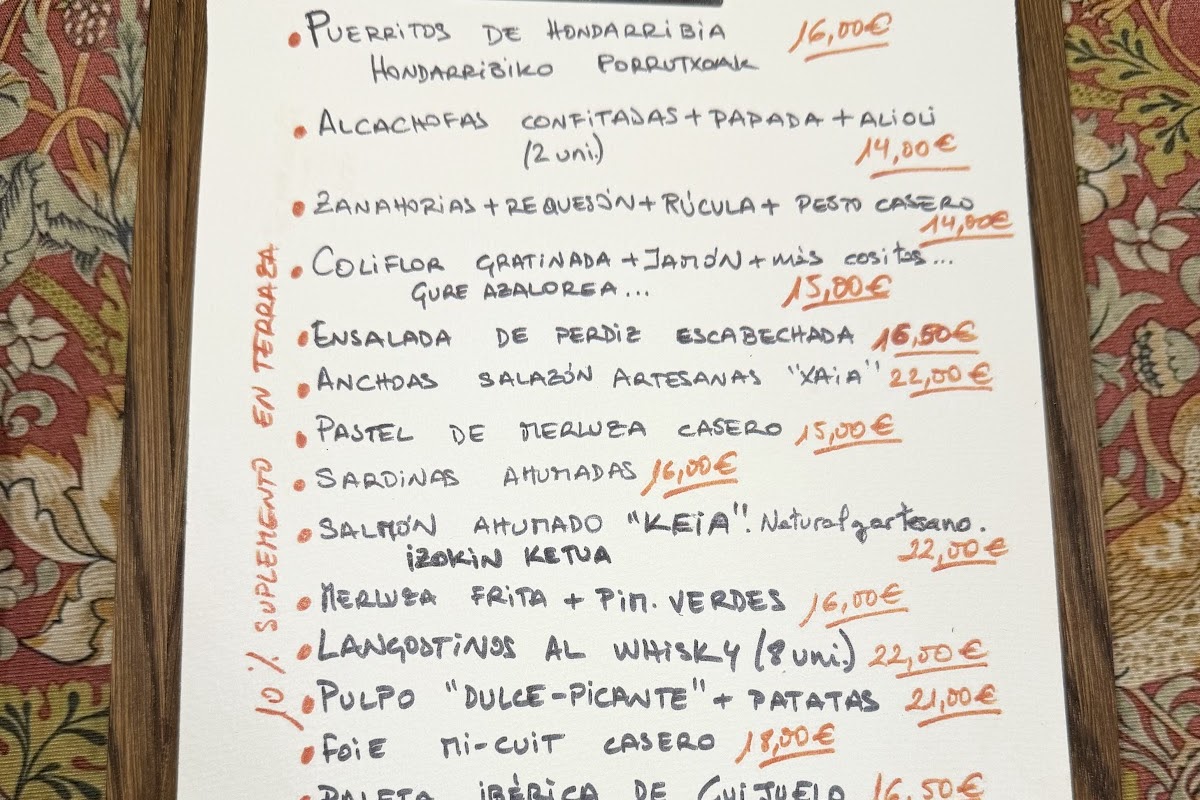 PUERRITOS DE HONDARRIBIA 16,00€
HONDARRIBIKO PORRUTXOAK
ALCACHOFAS CONFITADAS + PAPADA + ALIOLI
(2 uni.) 14,00€
ZANAHORIAS + REQUESÓN + RÚCULA + PESTO CASERO
14,00€
COLIFLOR GRATINADA + JAMÓN + más cositas...
GURE AZALOREA... 15,00€
ENSALADA DE PERDIZ ESCABECHADA 16,50€
ANCHOAS SALAZÓN ARTESANAS "XAiA" 22,00€
PASTEL DE MERLUZA CASERO 15,00€
SARDINAS AHUMADAS 16,00€
SALMÓN AHUMADO "KEiA". Natural y artesano.
iZOKiN KETUA 22,00€
MERLUZA FRITA + PiM. VERDES 16,00€
LANGOSTINOS AL WHISKY (8 uni.) 22,00€
PULPO "DULCE-PICANTE" + PATATAS 21,00€
FOiE Mi-CUIT CASERO 18,00€
PALETA iBÉRICA DE GUIJUELO 16,50€
10% SUPLEMENTO EN TERRAZA